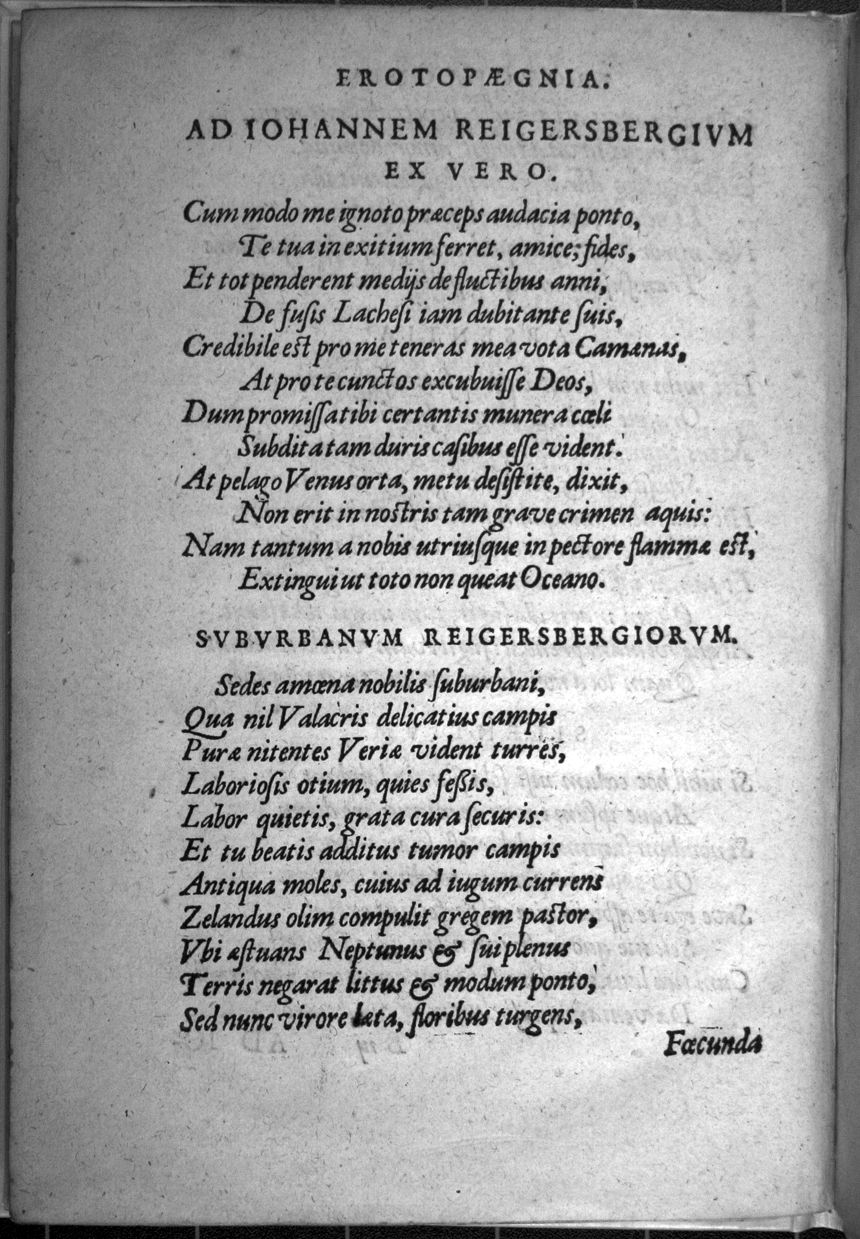 EROTOPÆGNIA.
AD IOHANNEM REIGERSBERGIVM
EX VERO.
Cum modo me ignoto præceps audacia ponto,
Te tua in exitium ferret, amice; fides,
Et tot penderent medijs de fluctibus anni,
De fusis Lachesi iam dubitante suis,
Credibile est pro me teneras mea vota Camænas,
At pro te cunctos excubuisse Deos,
Dum promissa tibi certantis munera cœli
Subdita tam duris casibus esse vident.
At pelago Venus orta, metu desistite, dixit,
Non erit in nostris tam grave crimen aquis:
Nam tantum a nobis utriusque in pectore flammæ est,
Extingui ut toto non queat Oceano.
SVBVRBANVM REIGERSBERGIORVM.
Sedes amœna nobilis suburbani,
Qua nil Valacris delicatius campis
Puræ nitentes Veriæ vident turres,
Laboriosis otium, quies fessis,
Labor quietis, grata cura securis:
Et tu beatis additus tumor campis
Antiqua moles, cuius ad iugum currens
Zelandus olim compulit gregem pastor,
Vbi æstuans Neptunus & sui plenus
Terris negarat littus & modum ponto,
Sed nunc virore læta, floribus turgens,
Fœcunda